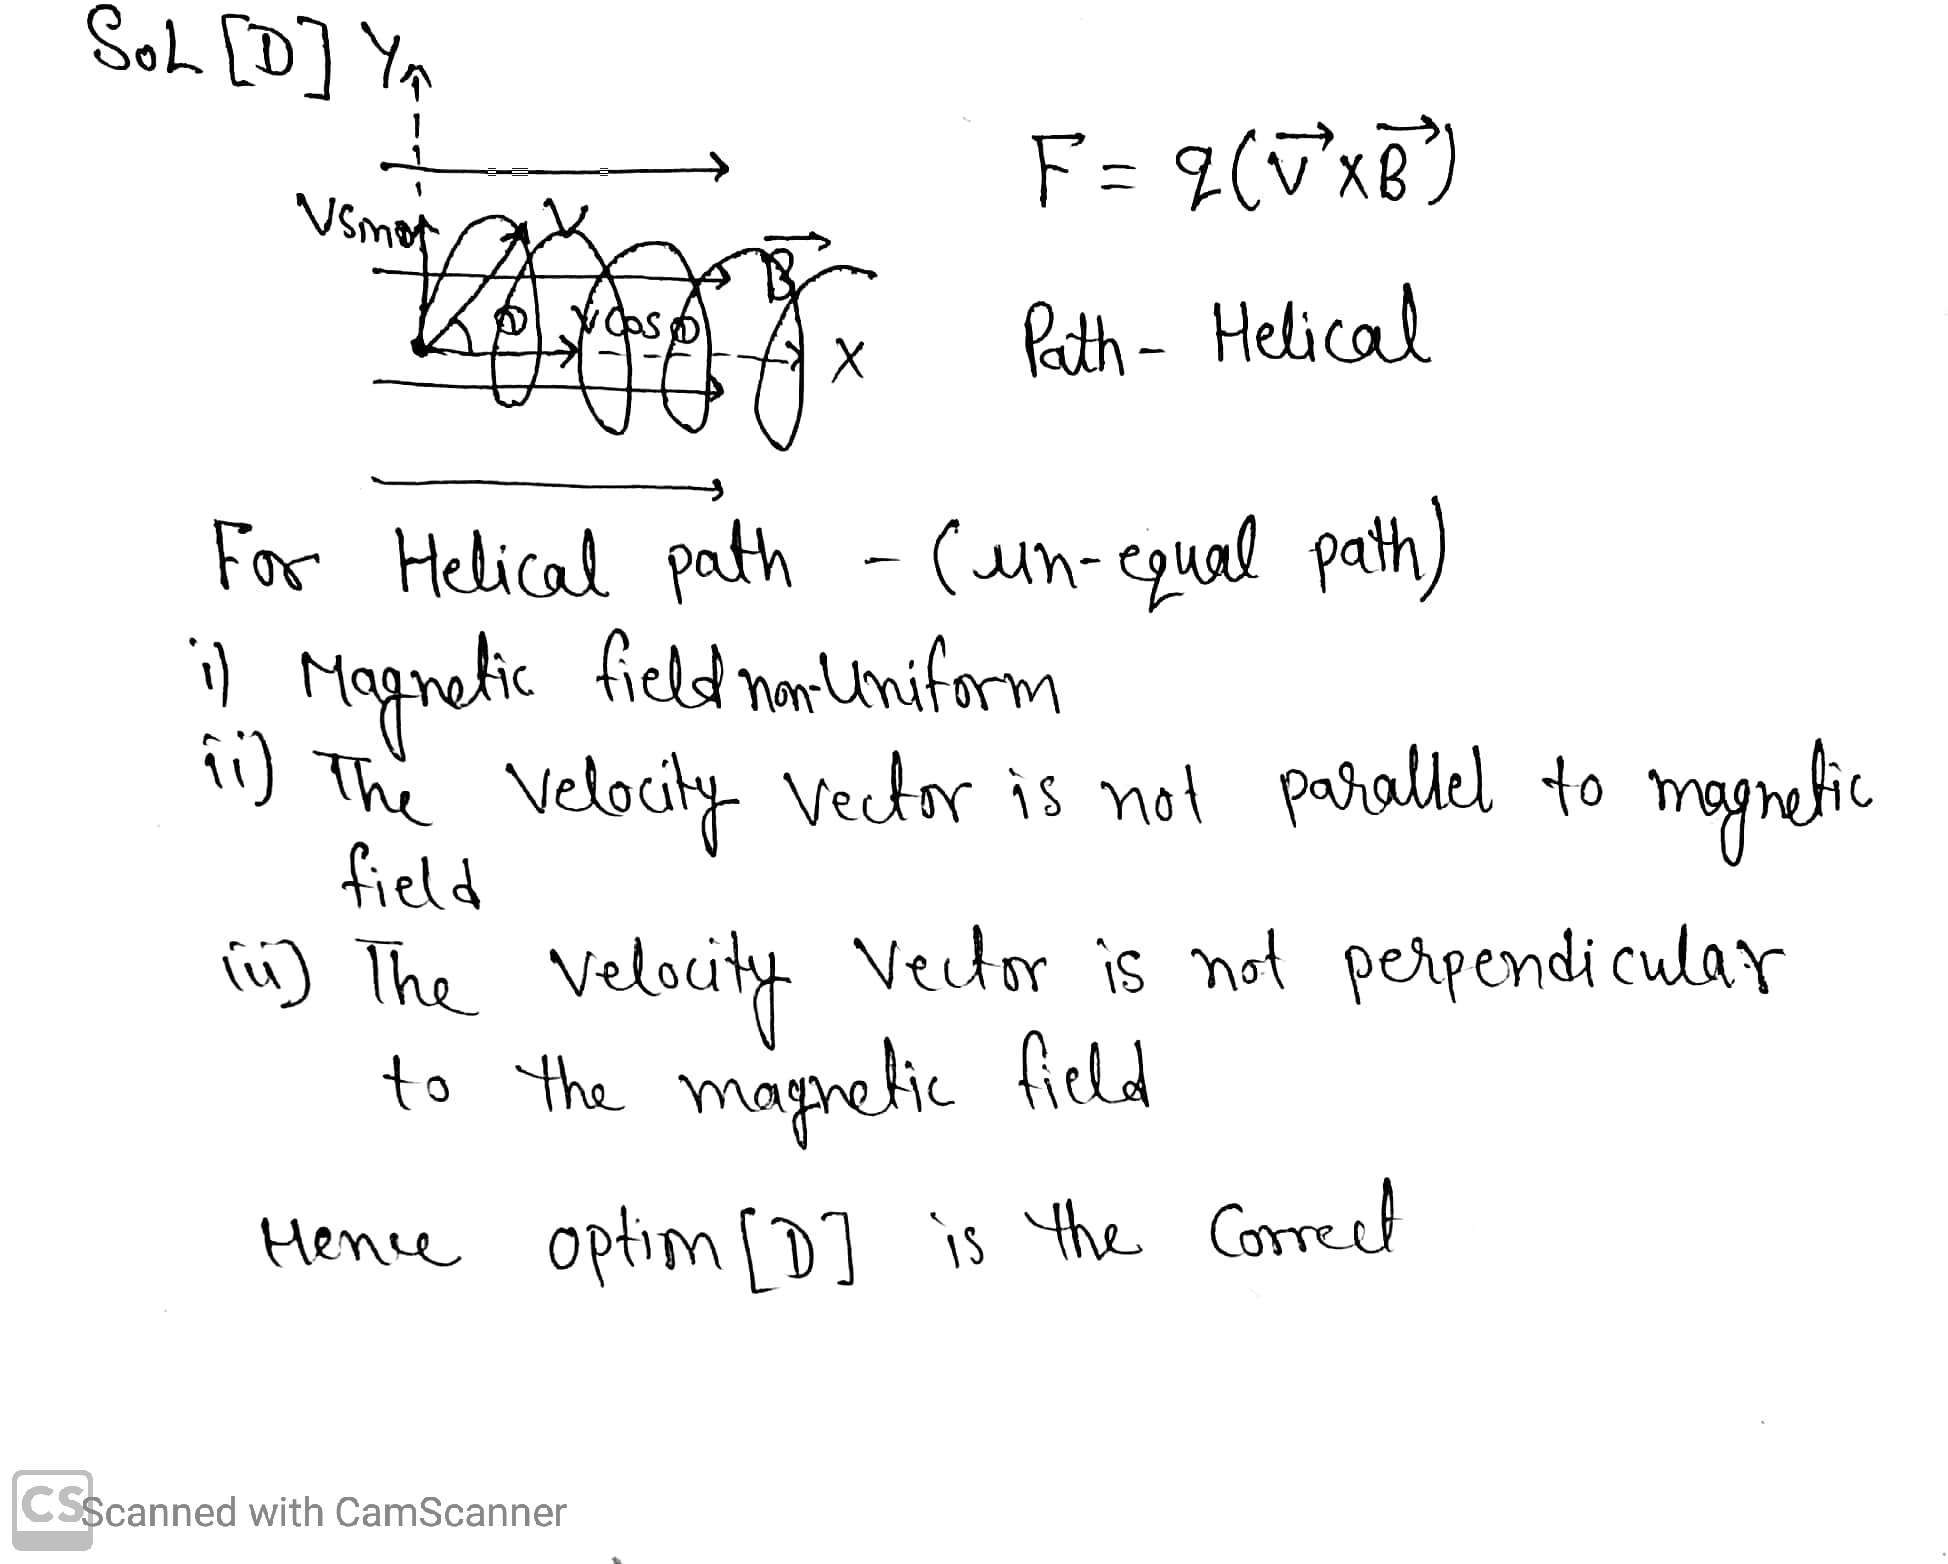 SOL [D] Y
F = q(v⃗ x B⃗)
V
B⃗
θ
V Cos θ
X
Path - Helical
For Helical path - (un-equal path)
i) Magnetic field non-Uniform
ii) The Velocity Vector is not parallel to magnetic
field
iii) The Velocity Vector is not perpendicular
to the magnetic field
Hence option [D] is the Correct
CS Scanned with CamScanner